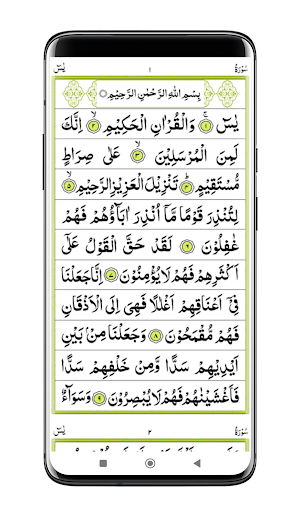 سُوۡرَةُ ١ يٰسٓ
بِسْمِ اللّٰهِ الرَّحْمٰنِ الرَّحِيْمِ
يٰسٓ ۚ ﴿١﴾ وَالْقُرْاٰنِ الْحَكِيْمِ ۙ ﴿٢﴾ اِنَّكَ
لَمِنَ الْمُرْسَلِيْنَ ۙ ﴿٣﴾ عَلٰى صِرَاطٍ
مُّسْتَقِيْمٍ ؕ ﴿٤﴾ تَنْزِيْلَ الْعَزِيْزِ الرَّحِيْمِ ۙ ﴿٥﴾
لِتُنْذِرَ قَوْمًا مَّاۤ اُنْذِرَ اٰبَآؤُهُمْ فَهُمْ
غٰفِلُوْنَ ﴿٦﴾ لَقَدْ حَقَّ الْقَوْلُ عَلٰٓى
اَكْثَرِهِمْ فَهُمْ لَا يُؤْمِنُوْنَ ﴿٧﴾ اِنَّا جَعَلْنَا
فِىْۤ اَعْنَاقِهِمْ اَغْلٰلًا فَهِىَ اِلَى الْاَذْقَانِ
فَهُمْ مُّقْمَحُوْنَ ﴿٨﴾ وَجَعَلْنَا مِنْۢ بَيْنِ
اَيْدِيْهِمْ سَدًّا وَّمِنْ خَلْفِهِمْ سَدًّا
فَاَغْشَيْنٰهُمْ فَهُمْ لَا يُبْصِرُوْنَ ﴿٩﴾ وَسَوَآءٌ
سُوۡرَةُ ٢ يٰسٓ